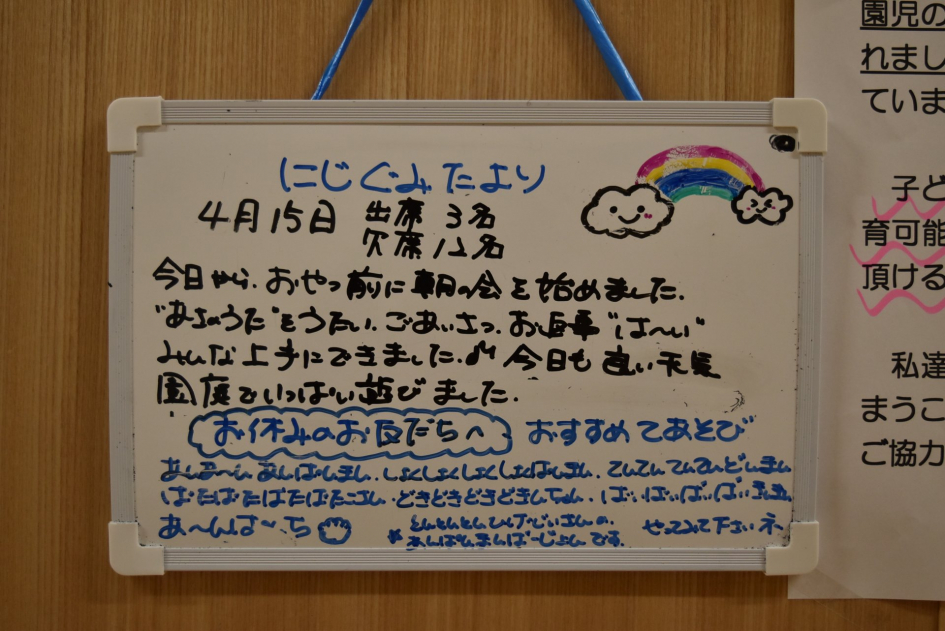 にじぐみたより
4月15日 出席 3名
欠席 12名
今日から、おやつ前に朝の会を始めました。
"あさのうた"をうたい、ごあいさつ、お返事"は〜い"
みんな上手にできました。♪ 今日も良い天気
園庭でいっぱい遊びました。
お休みのお友だちへ おすすめてあそび
あ〜ん あんぱんまん、しょくしょくしょくしょくぱんまん、てんてんてんてんどんまん
ばたばたばたばたこさん、どきどきどきどきんちゃん、ばいばいばいばいきんまん
あ〜んぱ〜ち
*とんとんとんひげじいさんの
あんぱんまんばーじょんです。
やってみて下さいネ
園児の
れまし
ていま
子ど
育可能
頂ける
私達
まうこ
ご協力